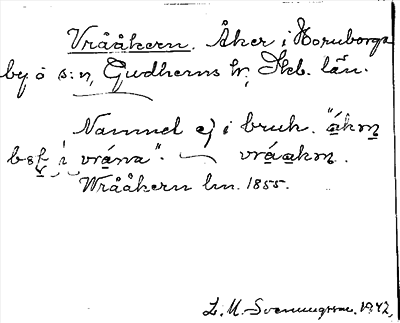 Vrååkern. Åker i Hornborga
by o s:n, Gudhems hr, Skb. län.
Namnet ej i bruk. "åkm̥
bsf i vråna". vråakm.
Wrååkern lm. 1855.
L. M. Svenungsson. 1942.